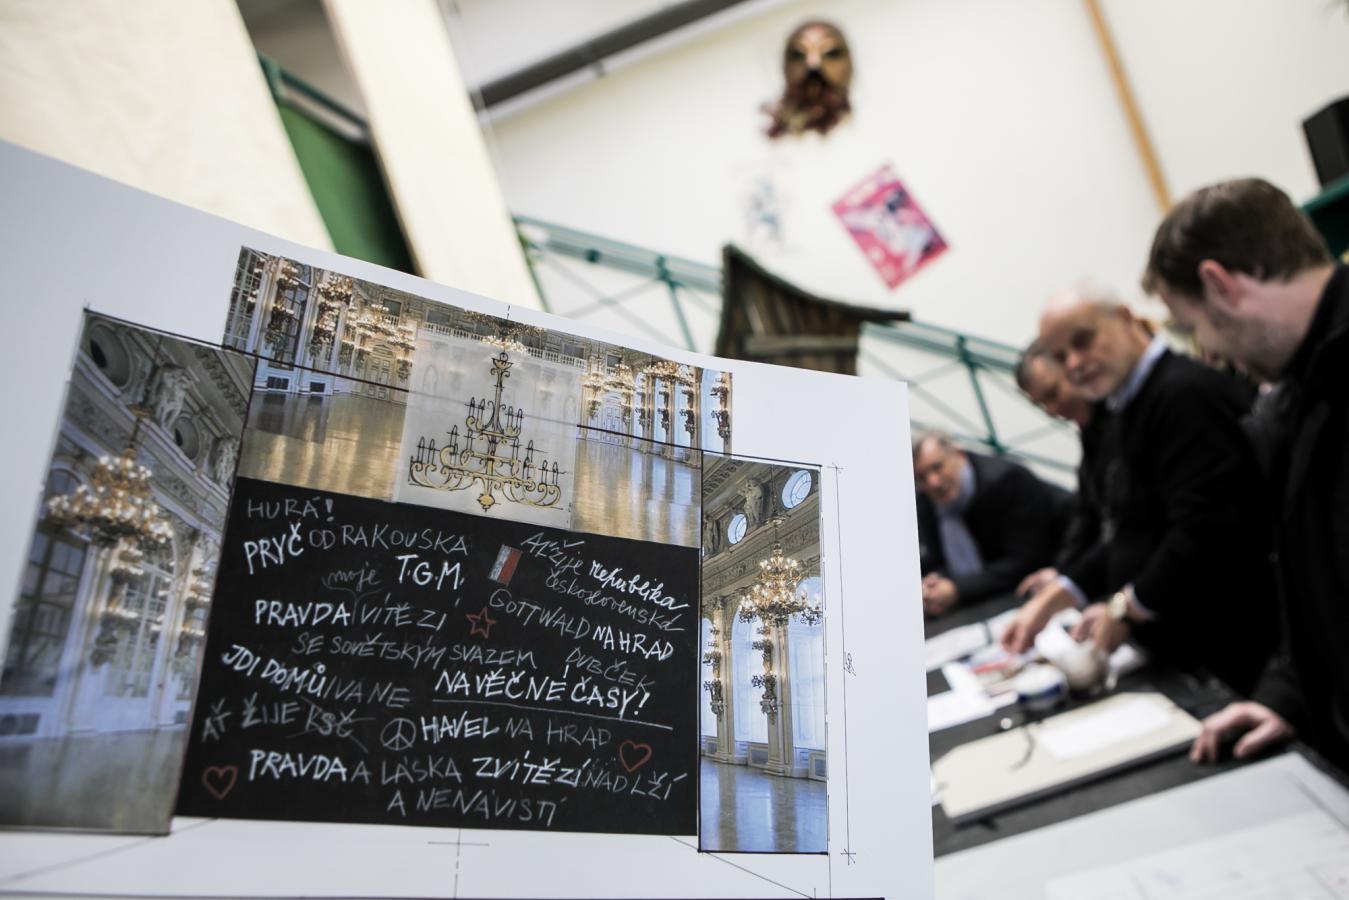 HURÁ!
PRYČ OD RAKOUSKA
moje T.G.M.
Ať žije republika
československá
PRAVDA VÍTĚZÍ
GOTTWALD NA HRAD
SE SOVĚTSKÝM SVAZEM
DUBČEK
JDI DOMŮ IVANE
NA VĚČNÉ ČASY!
AŤ ŽIJE KSČ
HAVEL NA HRAD
PRAVDA A LÁSKA ZVÍTĚZÍ NAD LŽÍ
A NENÁVISTÍ